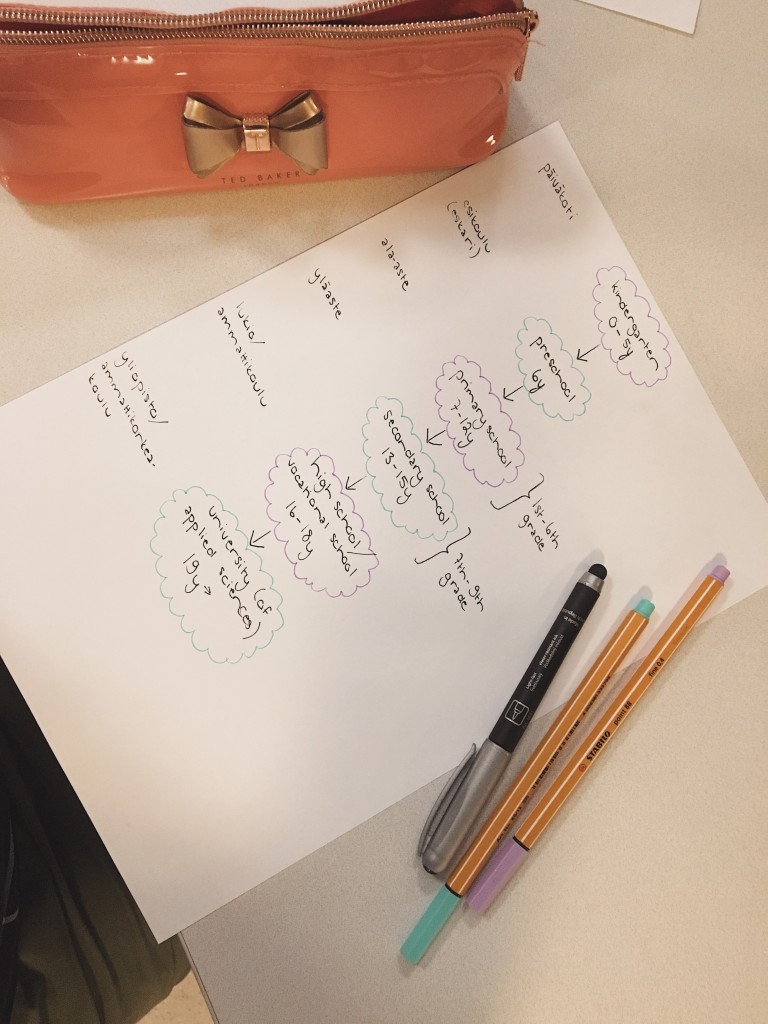 TED BAKER
päiväkoti
esikoulu
(eskari)
ala-aste
yläaste
lukio/
ammattikoulu
yliopisto/
ammattikorkea-
koulu
kindergarten
0-5y
preschool
6y
primary school
7-12y
1st-6th
grade
secondary school
13-15y
7th-9th
grade
high school/
vocational school
16-18y
university (of
applied sciences)
19y→
STABILO point 88 fine 0,4